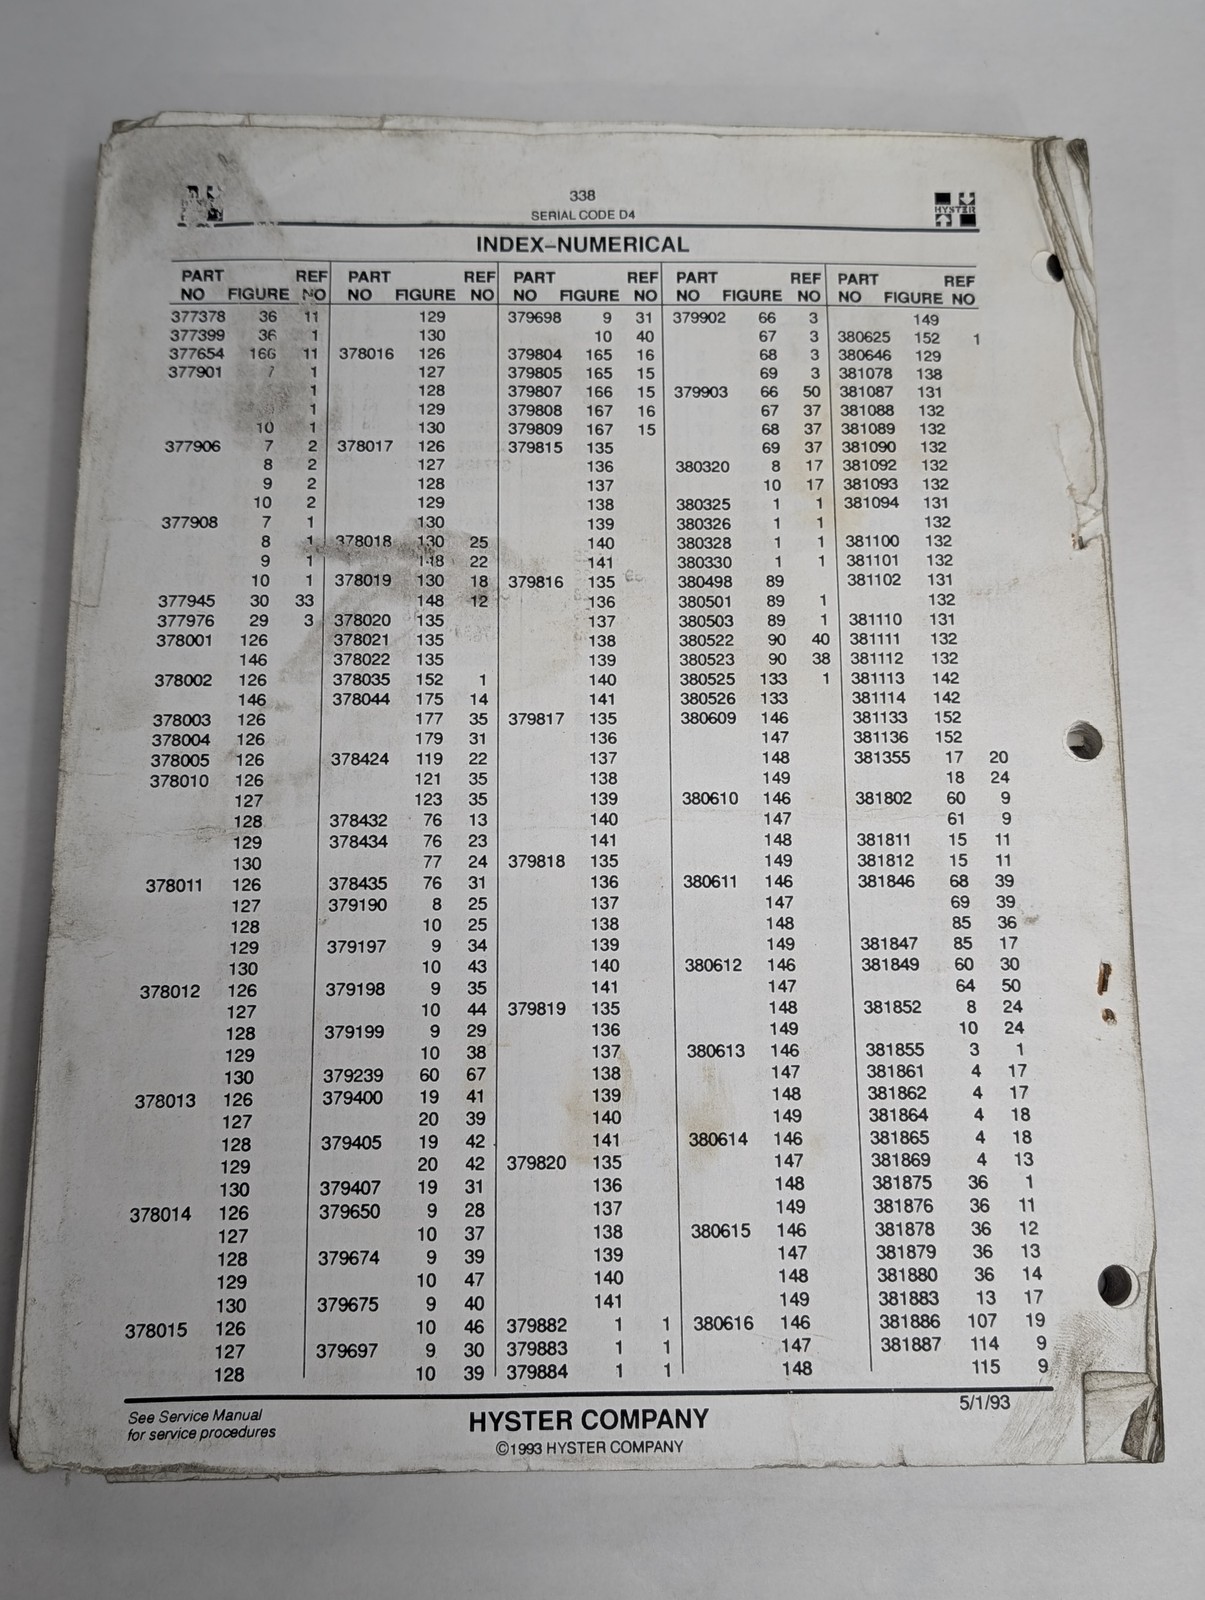 338
SERIAL CODE D4
HYSTER
INDEX–NUMERICAL
PART REF
NO FIGURE NO
377378 36 11
377399 36 1
377654 166 11
377901 7 1
1
1
10 1
377906 7 2
8 2
9 2
10 2
377908 7 1
8 1
9 1
10 1
377945 30 33
377976 29 3
378001 126
146
378002 126
146
378003 126
378004 126
378005 126
378010 126
127
128
129
130
378011 126
127
128
129
130
378012 126
127
128
129
130
378013 126
127
128
129
130
378014 126
127
128
129
130
378015 126
127
128
PART REF
NO FIGURE NO
129
130
378016 126
127
128
129
130
378017 126
127
128
129
130
378018 130 25
148 22
378019 130 18
148 12
378020 135
378021 135
378022 135
378035 152 1
378044 175 14
177 35
179 31
378424 119 22
121 35
123 35
378432 76 13
378434 76 23
77 24
378435 76 31
379190 8 25
10 25
379197 9 34
10 43
379198 9 35
10 44
379199 9 29
10 38
379239 60 67
379400 19 41
20 39
379405 19 42
20 42
379407 19 31
379650 9 28
10 37
379674 9 39
10 47
379675 9 40
10 46
379697 9 30
10 39
PART REF
NO FIGURE NO
379698 9 31
10 40
379804 165 16
379805 165 15
379807 166 15
379808 167 16
379809 167 15
379815 135
136
137
138
139
140
141
379816 135
136
137
138
139
140
141
379817 135
136
137
138
139
140
141
379818 135
136
137
138
139
140
141
379819 135
136
137
138
139
140
141
379820 135
136
137
138
139
140
141
379882 1 1
379883 1 1
379884 1 1
PART REF
NO FIGURE NO
379902 66 3
67 3
68 3
69 3
379903 66 50
67 37
68 37
69 37
380320 8 17
10 17
380325 1 1
380326 1 1
380328 1 1
380330 1 1
380498 89
380501 89 1
380503 89 1
380522 90 40
380523 90 38
380525 133 1
380526 133
380609 146
147
148
149
380610 146
147
148
149
380611 146
147
148
149
380612 146
147
148
149
380613 146
147
148
149
380614 146
147
148
149
380615 146
147
148
149
380616 146
147
148
PART REF
NO FIGURE NO
149
380625 152 1
380646 129
381078 138
381087 131
381088 132
381089 132
381090 132
381092 132
381093 132
381094 131
132
381100 132
381101 132
381102 131
132
381110 131
381111 132
381112 132
381113 142
381114 142
381133 152
381136 152
381355 17 20
18 24
381802 60 9
61 9
381811 15 11
381812 15 11
381846 68 39
69 39
85 36
381847 85 17
381849 60 30
64 50
381852 8 24
10 24
381855 3 1
381861 4 17
381862 4 17
381864 4 18
381865 4 18
381869 4 13
381875 36 1
381876 36 11
381878 36 12
381879 36 13
381880 36 14
381883 13 17
381886 107 19
381887 114 9
115 9
See Service Manual
for service procedures
HYSTER COMPANY
©1993 HYSTER COMPANY
5/1/93